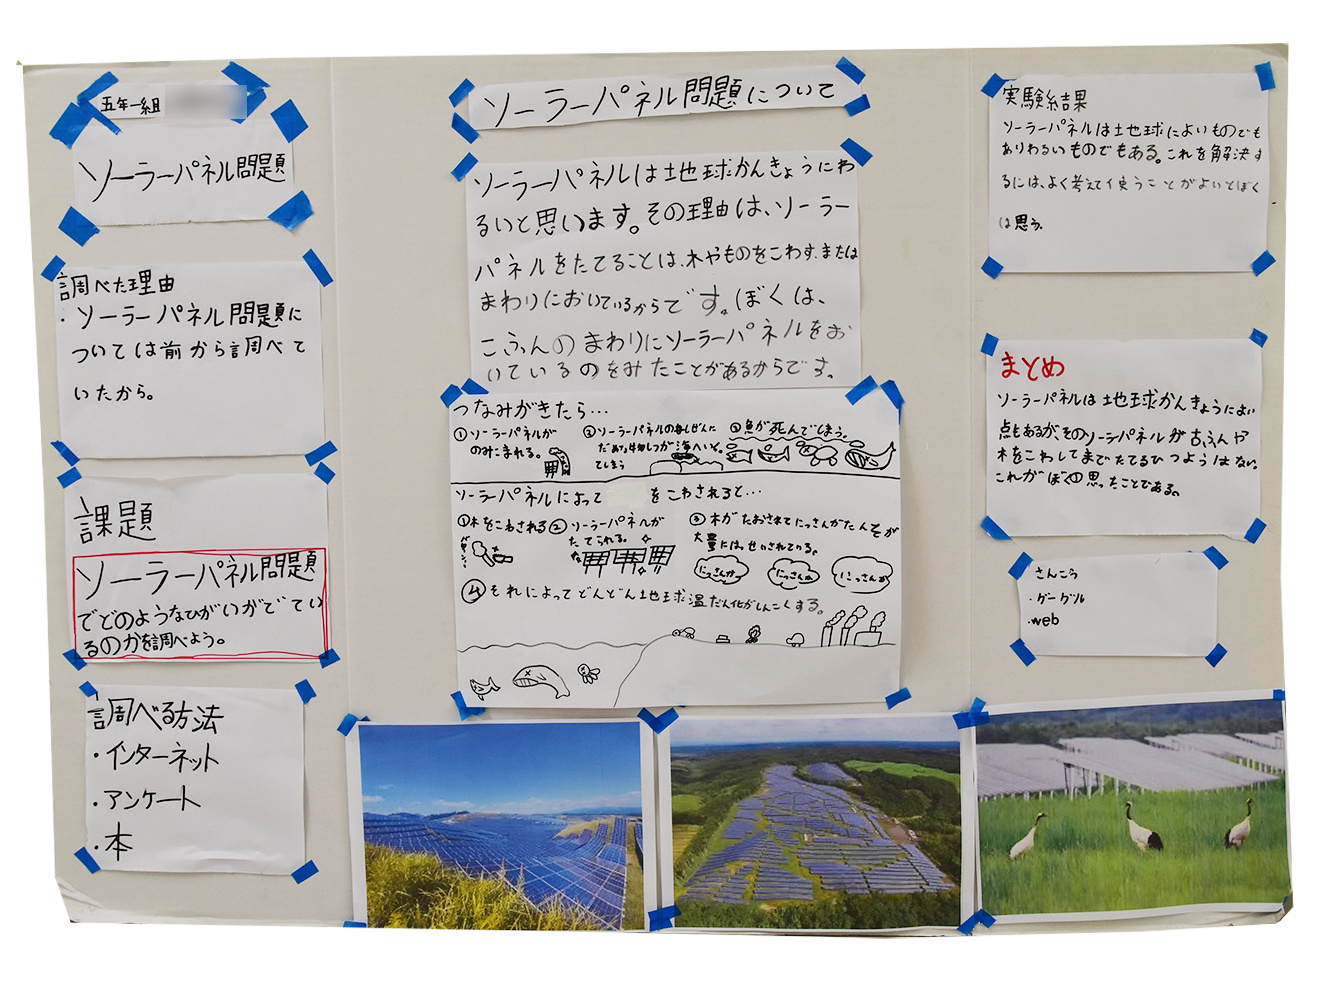 五年一組
ソーラーパネル問題
調べた理由
・ソーラーパネル問題に
ついては前から調べて
いたから。
課題
ソーラーパネル問題
でどのようなひがいがでてい
るのかを調べよう。
調べる方法
・インターネット
・アンケート
・本
ソーラーパネル問題について
ソーラーパネルは地球かんきょうにわ
るいと思います。その理由は、ソーラー
パネルをたてることは、木やものをこわす、または
まわりにおいているからです。ぼくは、
こふんのまわりにソーラーパネルをお
いているのをみたことがあるからです。
つなみがきたら…
①ソーラーパネルが
のみこまれる。
②ソーラーパネルの
てしまう
③魚が死んでしまう。
ソーラーパネルによって
をこわされると…
①木をこわされる
②ソーラーパネルが
たてられる。
③木がたおされてにっさんかたんそが
大量にはっせいされている。
にっさんか
にっさんか
にっさんか
④それによってどんどん地球温だん化がしんこくする。
実験結果
ソーラーパネルは土地球によいものでも
ありわるいものでもある。これを解決す
るには、よく考えて使うことがよいとぼく
は思う。
まとめ
ソーラーパネルは地球かんきょうによい
点もあるが、そのソーラーパネルが古ふんや
木をこわしてまでたてるひつようはない。
これがぼくの思ったことである。
さんこう
・グーグル
・web